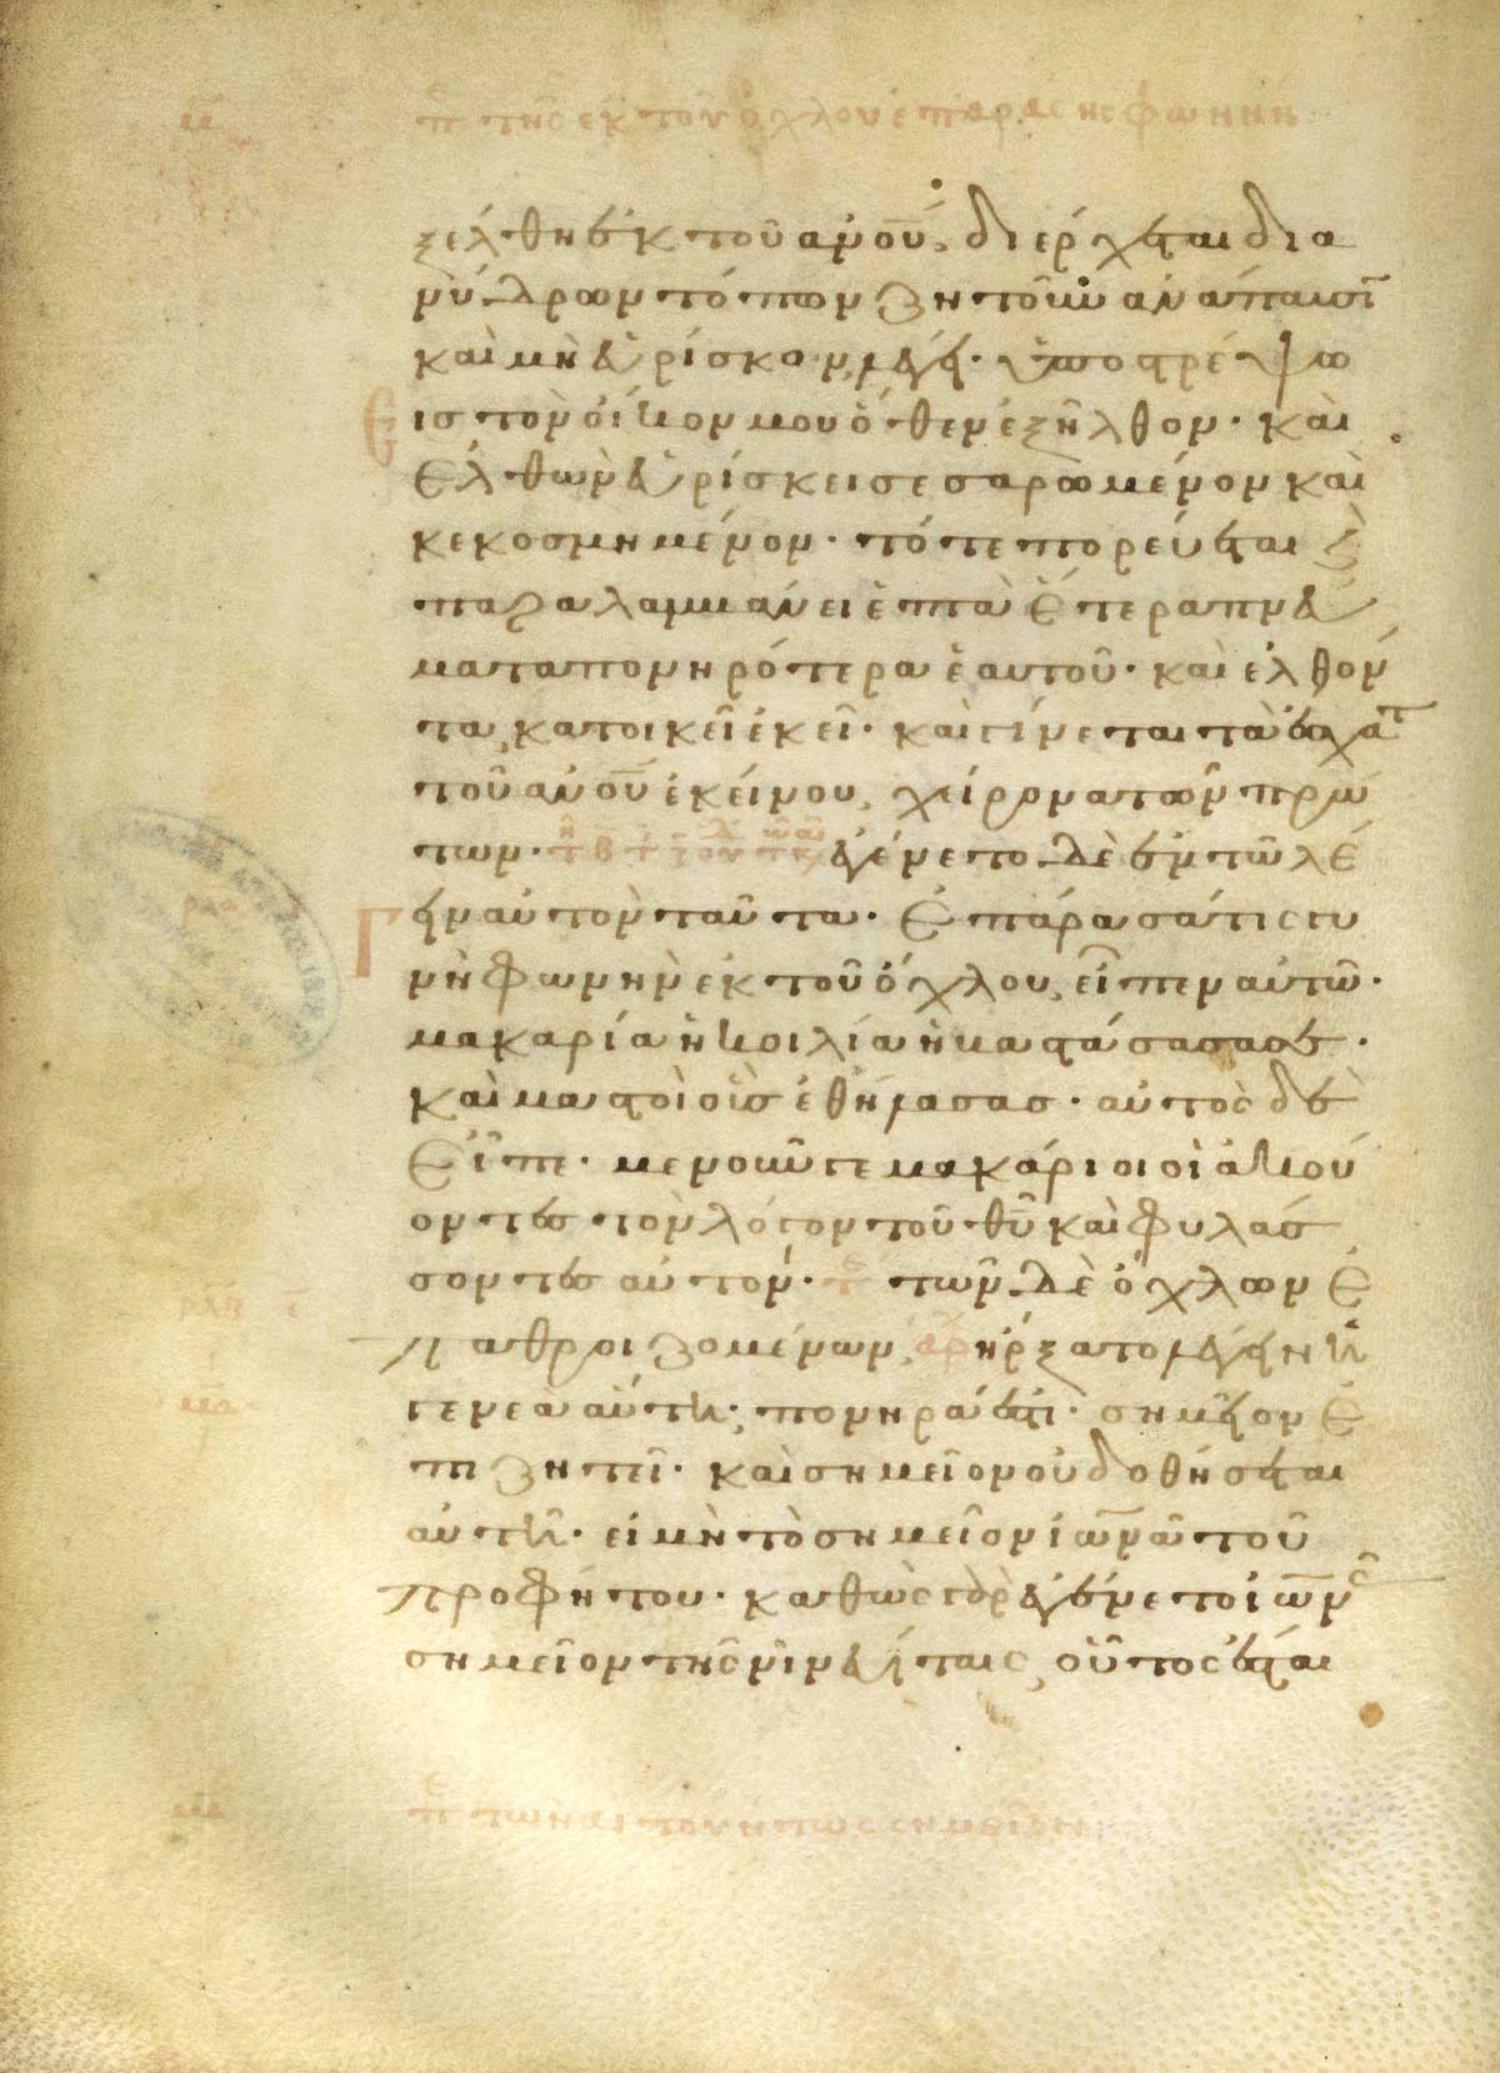 π̅ε̅ τῆς ἐκ τοῦ ὄχλου ἐπαράσης φωνήν
ξέλθη ἐκ τοῦ ἀν̅ου̅, διέρχεται δι' ἀ
νύδρων τόπων ζητοῦν ἀνάπαυσῑ
καὶ μὴ εὑρίσκον, λέγει· ὑποστρέψω
Ε ις τὸν οἶκον μου ὅθεν ἐξῆλθον· καὶ
ἐλθὼν εὑρίσκει σεσαρωμένον καὶ
κεκοσμημένον· τότε πορεύεται ϗ
παραλαμβάνει ἑπτὰ ἕτερα πνεύ
ματα πονηρότερα ἑαυτοῦ· καὶ ἐλθόν
τα, κατοικεῖ ἐκεῖ· καὶ γίνεται τὰ ἔσχατ
τοῦ ἀν̅ου̅ ἐκείνου, χείρονα τῶν πρώ
των· ἐγένετο δὲ ἐν τῶ λέ
Γ ειν αὐτὸν ταῦτα· ἐπάρασά τις γυ
νὴ φωνὴν ἐκ τοῦ ὄχλου, εἶπεν αὐτῶ·
μακαρία ἡ κοιλία ἡ βαστάσασα σε·
καὶ μαστοὶ οὓς ἐθήλασας· αὐτὸς δὲ
εἶπε· μενοῦνγε μακάριοι οἱ ἀκού
οντες τὸν λόγον τοῦ θ̅υ̅ καὶ φυλάσ
σοντες αὐτόν· τῶν δὲ ὄχλων ἐ
παθροιζομένων, ἤρξατο λέγειν ἡ
γενεὰ αὕτη, πονηρά ἐστι· σημεῖον ἐ
πιζητεῖ· καὶ σημεῖον οὐ δοθήσεται
αὐτῆ· εἰ μὴ τὸ σημεῖον ἰω̅νᾶ τοῦ
προφήτου· καθὼς γὰρ ἐγένετο ἰω̅νᾶς
σημεῖον τῆς νινευίταις, οὕτος ἔσται
π̅ε̅ τῶν αἰτούντων σημεῖον